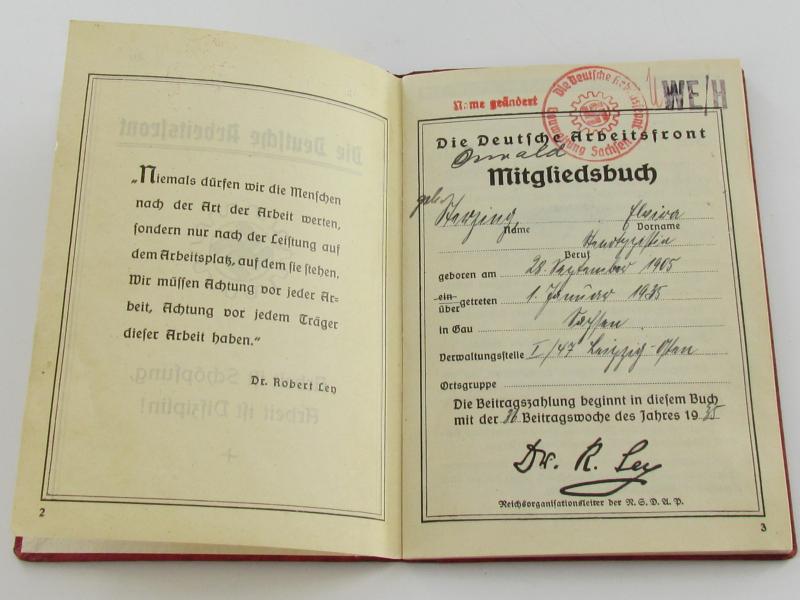 „Niemals dürfen wir die Menschen
nach der Art der Arbeit werten,
sondern nur nach der Leistung auf
dem Arbeitsplatz, auf dem sie stehen.
Wir müssen Achtung vor jeder Ar-
beit, Achtung vor jedem Träger
dieser Arbeit haben.“
Dr. Robert Ley
2
Name geändert
Die Deutsche Arbeitsfront
Gauwaltung Sachsen
WE/H
Die Deutsche Arbeitsfront
Oswald
Mitgliedsbuch
geb. Herzing Elvira
Name Vorname
Stenotypistin
Beruf
geboren am 28. September 1905
ein-
über getreten 1. Januar 1935
in Gau Sachsen
Verwaltungsstelle I/47 Leipzig-Osten
Ortsgruppe
Die Beitragszahlung beginnt in diesem Buch
mit der Beitragswoche des Jahres 1935
Dr. R. Ley
Reichsorganisationsleiter der N.S.D.A.P.
3